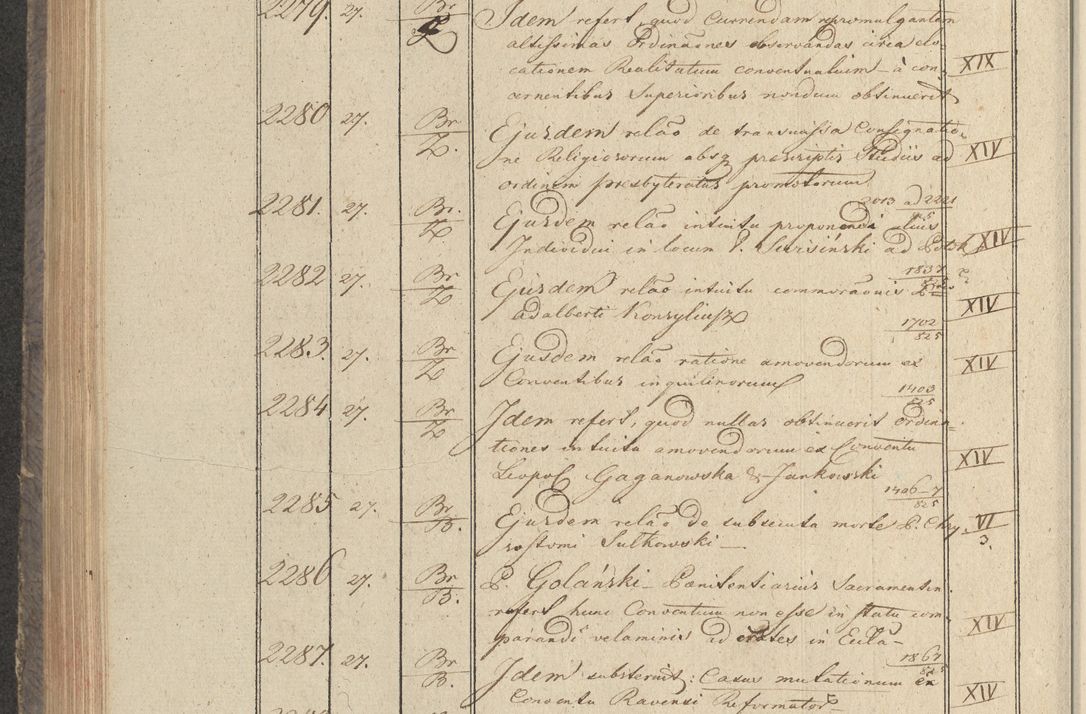 2279. 27. Br Idem refert, quod Currendam repromulgantem
Z altissimas Ordinaōnes observandas circa elo-
cationem Realitatum conventualium à con- XIX
cernentibus Superioribus nondum obtinuerit
2280 27. Br Ejusdem relāo de transmissa Consignatio-
Z. ne Religiosorum absq praescriptis Studiis ad XIV
ordinem presbyteratus promotorum
2013 ad 2221
2281. 27. Br. Ejusdem relāo intuitu proponendi alius 825
Z. Individui in locum P. Surisiński ad XIV
1837
2282 27. Br Ejusdem relāo intuitu commoraōnis
Z adalberti Konzyliusz XIV
1702
825
2283. 27. Br Ejusdem relāo ratione amovendorum ex XIV
Z Conventibus inquilinorum
1403
825
2284 27. Br Idem refert, quod nullas obtinuerit ordina-
Z tiones intuitu amovendorum ex Conventu XIV
Leopol Gaganowska & Jankowski
1406-7
825
2285 27. Br Ejusdem relāo de subsecuta morte P. Chry- VI
B. sostomi Sulkowski 3.
2286 27. Br P. Golański Poenitentiarius Sacramentin.
B. refert hunc Conventum non esse in statu com XIV
parandi velaminis ad crates in Eccla-
1867
825
2287. 27. Br Idem substernit: Casus mutationum ex
B. Conventu Ravensi Reformator XIV